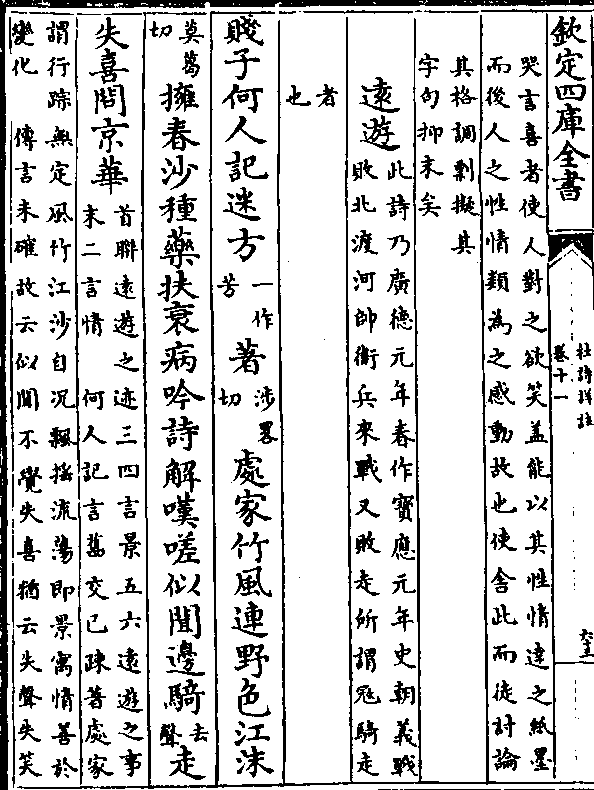 欽定四庫全書
杜詩詳註
卷十一
哭言喜者使人對之欲笑盖能以其性情達之紙墨
而後人之性情類為之感動故也使舍此而徒討論
其格調剽擬其
字句抑末矣
遠遊
此詩乃廣德元年春作寶應元年史朝義戰
敗北渡河帥衛兵來戰又敗走所謂冦騎走
者
也
賤子何人記迷方
一作
芳
著
涉畧
切
處家竹風連野色江沫
莫葛
切
擁春沙種藥扶衰病吟詩解嘆嗟似聞邊騎
去
聲
走
失喜問京華
首聯遠遊之迹三四言景五六遠遊之事
末二言情 何人記言舊交已疎著處家
謂行踪無定風竹江沙自况飄揺流蕩即景寓情善於
變化 傳言未確故云似聞不覺失喜猶云失聲失笑